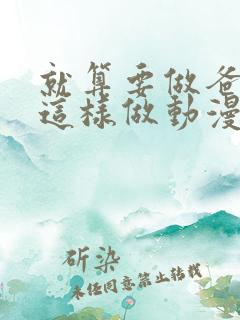 就算要做爸
這樣做動漫
斫染
未經同意禁止轉載